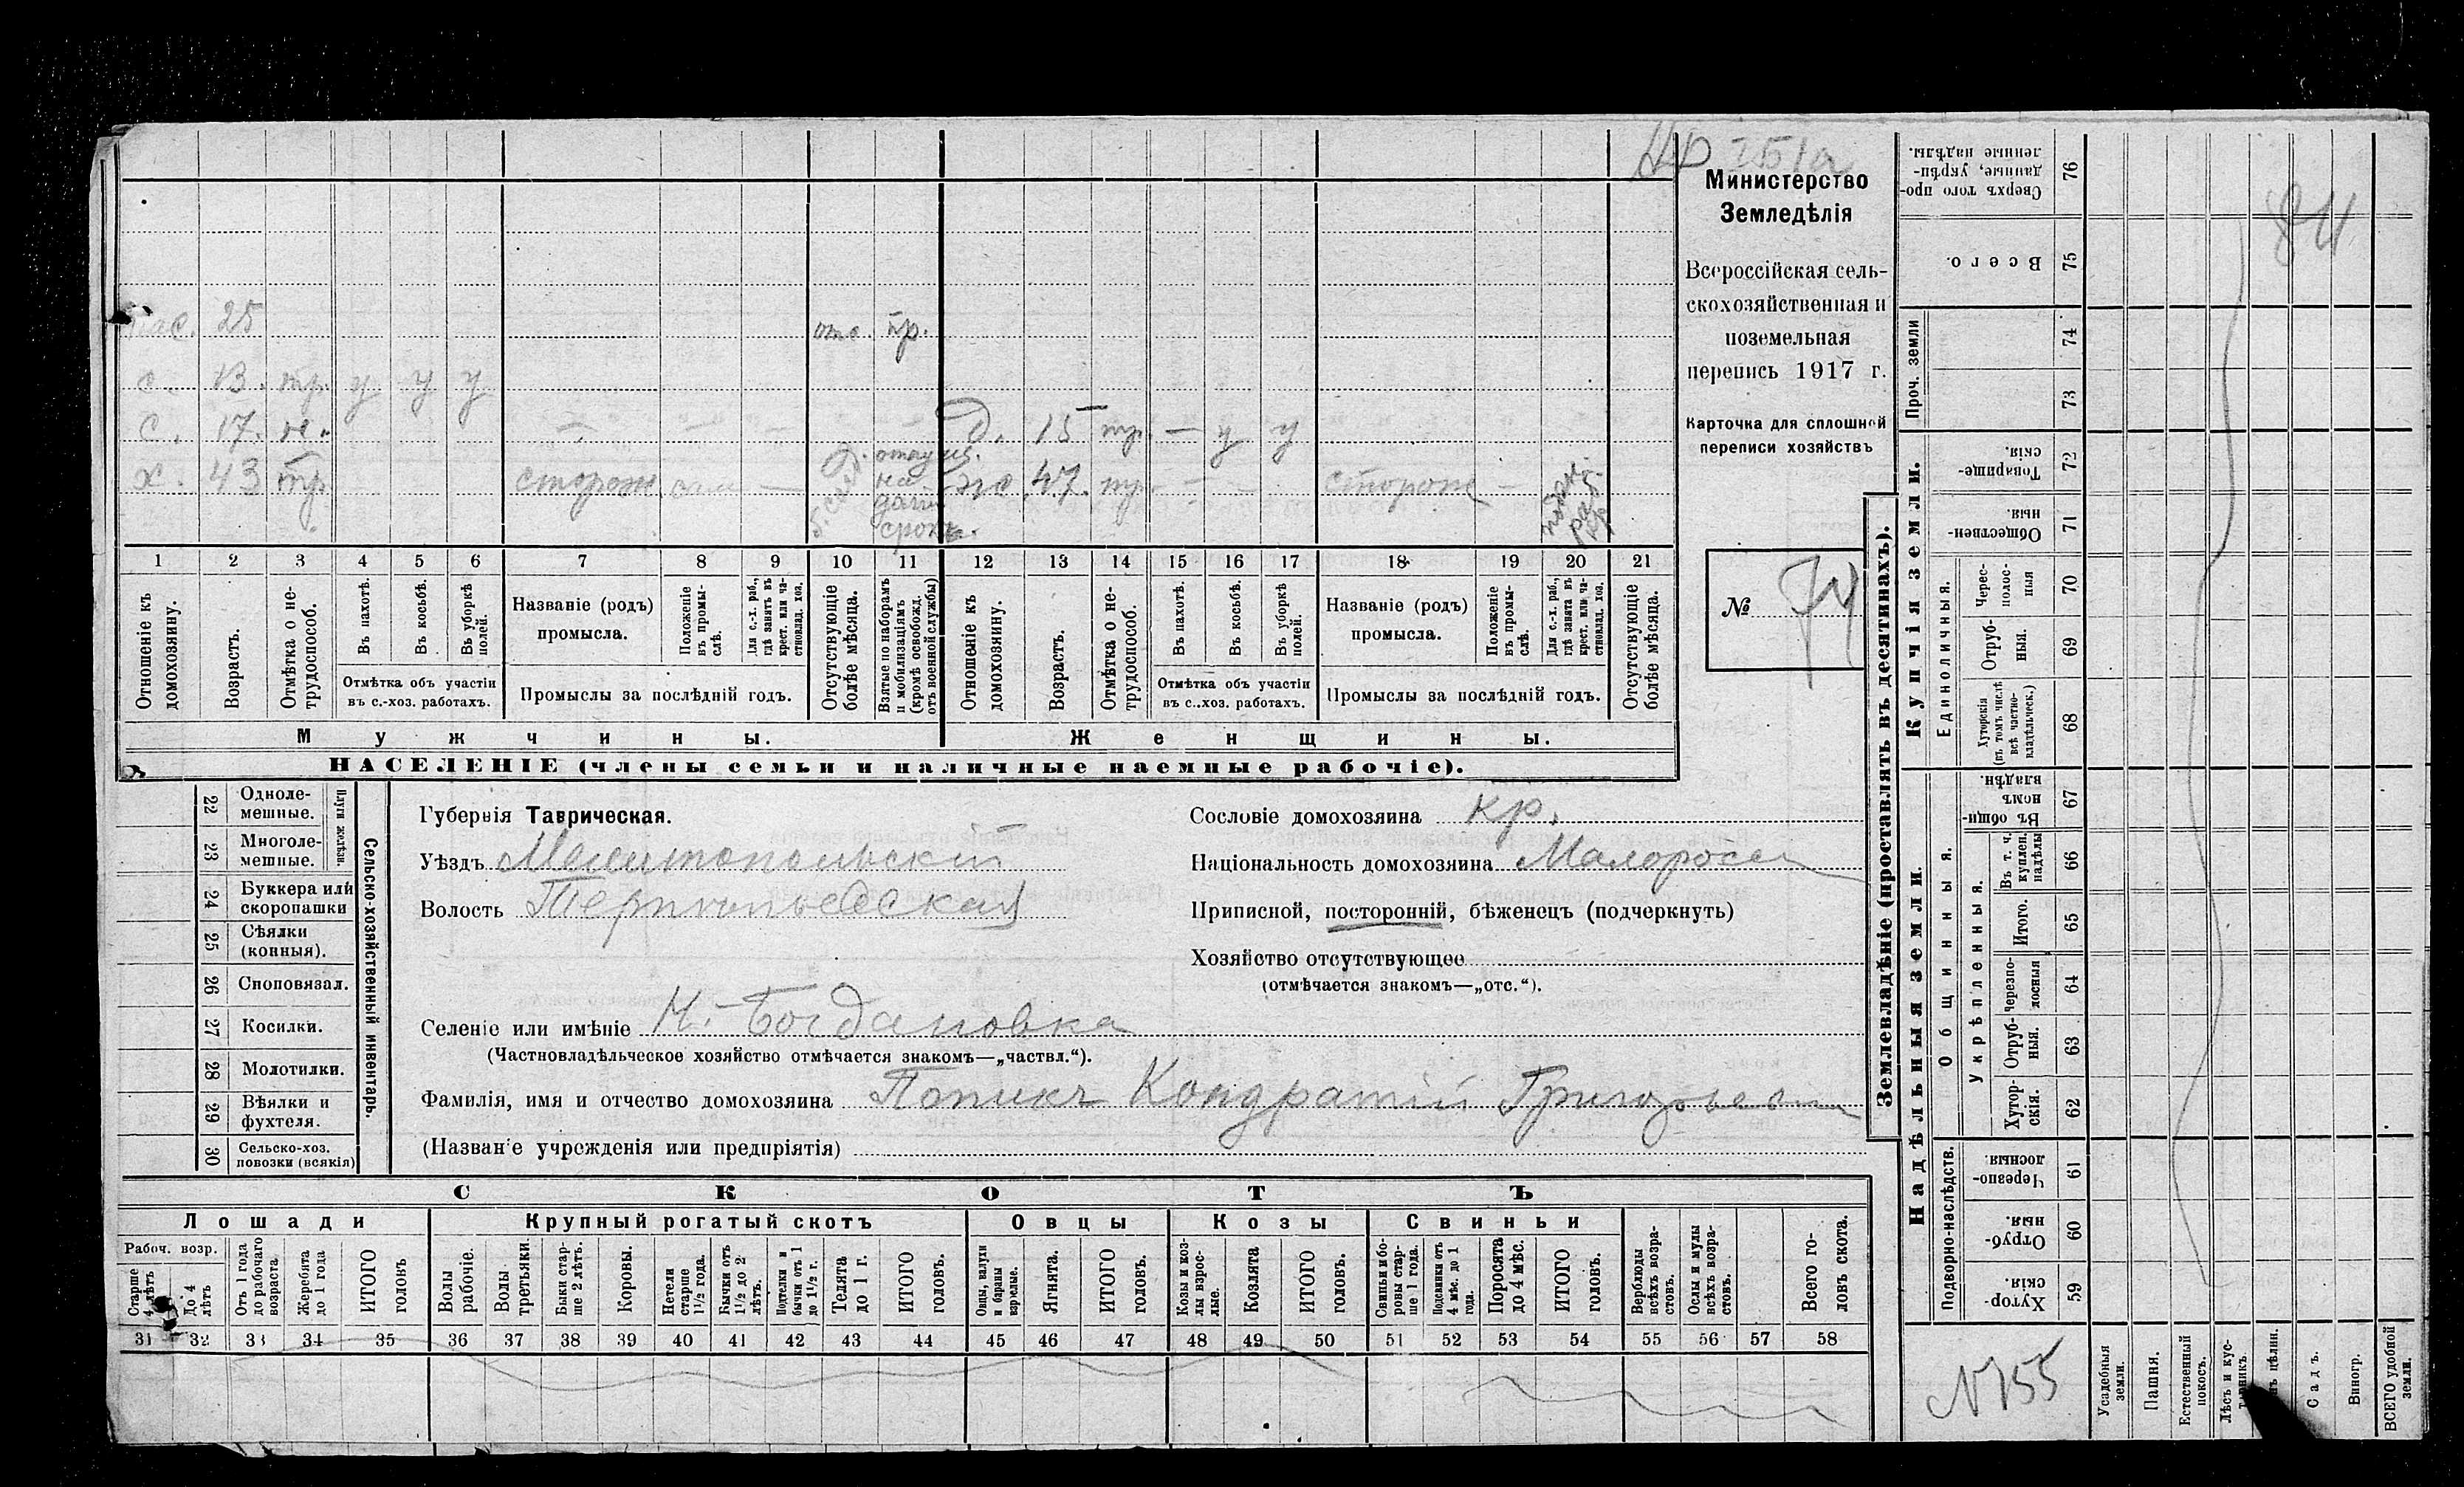 Министерство
Земледѣлія
Всероссійская сель-
скохозяйственная и
поземельная
перепись 1917 г.
Карточка для сплошной
переписи хозяйствъ
№ 74
84
25 отс. пр.
с. 13. тр. у у у
с. 17. не. д. 15 тр. — у у
х. 43 тр. сторож сам — отпущ. на дачн. срокъ. ж. 47. тр. сторож —
1 2 3 4 5 6 7 8 9 10 11 12 13 14 15 16 17 18 19 20 21
Отношеніе къ домохозяину.
Возрастъ.
Отмѣтка о не-трудоспособ.
Въ пахотѣ.
Въ косьбѣ.
Въ уборкѣ полей.
Отмѣтка объ участіи въ с.-хоз. работахъ.
Названіе (родъ) промысла.
Положеніе въ промы-слѣ.
Для с.-х. раб., гдѣ занятъ въ крест. или ча-стновлад. хоз.
Промыслы за послѣдній годъ.
Отсутствующіе болѣе мѣсяца.
Взятые по наборамъ и мобилизаціямъ (кромѣ освобожд. отъ военной службы)
Отношеніе къ домохозяину.
Возрастъ.
Отмѣтка о не-трудоспособ.
Въ пахотѣ.
Въ косьбѣ.
Въ уборкѣ полей.
Отмѣтка объ участіи въ с..хоз. работахъ.
Названіе (родъ) промысла.
Положеніе въ промы-слѣ.
Для с.-х. раб., гдѣ занята въ крест. или ча-стновлад. хоз.
Промыслы за послѣдній годъ.
Отсутствующіе болѣе мѣсяца.
Мужчины. Женщины.
НАСЕЛЕНІЕ (члены семьи и наличные наемные рабочіе).
Сельско-хозяйственный инвентарь.
Плуги желѣзн.
22 Одноле-мешные.
23 Многоле-мешные.
24 Буккера или скоропашки
25 Сѣялки (конныя).
26 Сноповязал.
27 Косилки.
28 Молотилки.
29 Вѣялки и фухтеля.
30 Сельско-хоз. повозки (всякія)
Губернія Таврическая.
Уѣздъ Мелитопольскій
Волость
Селеніе или имѣніе Н.-Богдановка
(Частновладѣльческое хозяйство отмѣчается знакомъ—„частвл.“).
Фамилія, имя и отчество домохозяина Попикъ Кондратій Григорьевич
(Названіе учрежденія или предпріятія)
Сословіе домохозяина кр.
Національность домохозяина Малоросс
Приписной, посторонній, бѣженецъ (подчеркнуть)
Хозяйство отсутствующее
(отмѣчается знакомъ—„отс.“).
СКОТЪ
Лошади Крупный рогатый скотъ Овцы Козы Свиньи
Рабоч. возр.
Старше 4 лѣтъ
До 4 лѣтъ
Отъ 1 года до рабочаго возраста
Жеребята до 1 года
ИТОГО головъ
Волы рабочіе.
Волы третьяки.
Быки стар-ше 2 лѣтъ.
Коровы.
Нетели старше 1½ года.
Бычки отъ 1½ до 2 лѣтъ.
Подтелки и бычки отъ 1 до 1½ г.
Телята до 1 г.
ИТОГО головъ.
Овцы, валухи и бараны взрослые.
Ягнята.
ИТОГО головъ.
Козы и коз-лы взрос-лые.
Козлята
ИТОГО головъ.
Свиньи и бо-ровы стар-ше 1 года.
Подсвинки отъ 4 мѣс. до 1 года.
Поросята до 4 мѣс.
ИТОГО головъ.
Верблюды всѣхъ возра-стовъ.
Ослы и мулы всѣхъ возра-стовъ.
Всего го-ловъ скота.
31 32 33 34 35 36 37 38 39 40 41 42 43 44 45 46 47 48 49 50 51 52 53 54 55 56 57 58
Землевладѣніе (проставлять въ десятинахъ).
Купчія земли.
Надѣльныя земли.
Проч. земли
Единоличныя.
Общинныя.
Укрѣпленныя.
Подворно-наслѣдств.
Сверхъ того про-данные, укрѣп-ленные надѣлы. 76
Всего. 75
74
73
Товарище-скія. 72
Обществен-ныя. 71
Черес-полос-ныя 70
Отруб-ныя. 69
Хуторскія (въ томъ числѣ всѣ частно-владѣльческ.) 68
Въ общи-номъ владѣн. 67
Въ т. ч. куплен. надѣлы 66
Итого. 65
Черезпо-лосныя 64
Отруб-ныя. 63
Хутор-скія. 62
Черезпо-лосныя. 61
Отруб-ныя. 60
Хутор-скія. 59
N 155
Усадебныя земли.
Пашня.
Естественный покосъ.
Лѣсъ и кус-тарникъ.
Садъ.
Виногр.
ВСЕГО удобной земли.